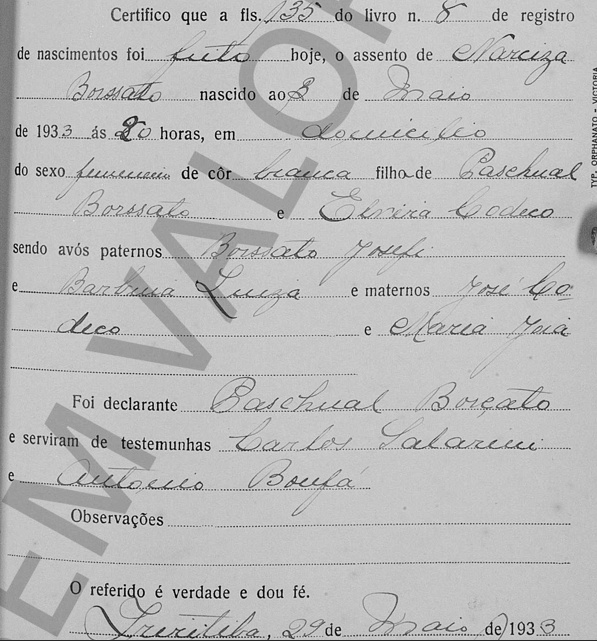 Certifico que a fls. 135 do livro n. 8 de registro
de nascimentos foi feito hoje, o assento de Narciza
Borssato nascido ao 3 de Maio
de 1933 ás 20 horas, em domicilio
do sexo feminino de côr branca filha de Paschual
Borssato e Elvira Codeco
sendo avós paternos Borssato Josefi
e Barbina Luiza e maternos José Co-
deco e Maria Joia
Foi declarante Paschual Borçato
e serviram de testemunhas Carlos Salarini
e Antonio Boufá
Observações
O referido é verdade e dou fé.
29 de Maio de 1933
EM VALOR
TYP. ORPHANATO - VICTORIA